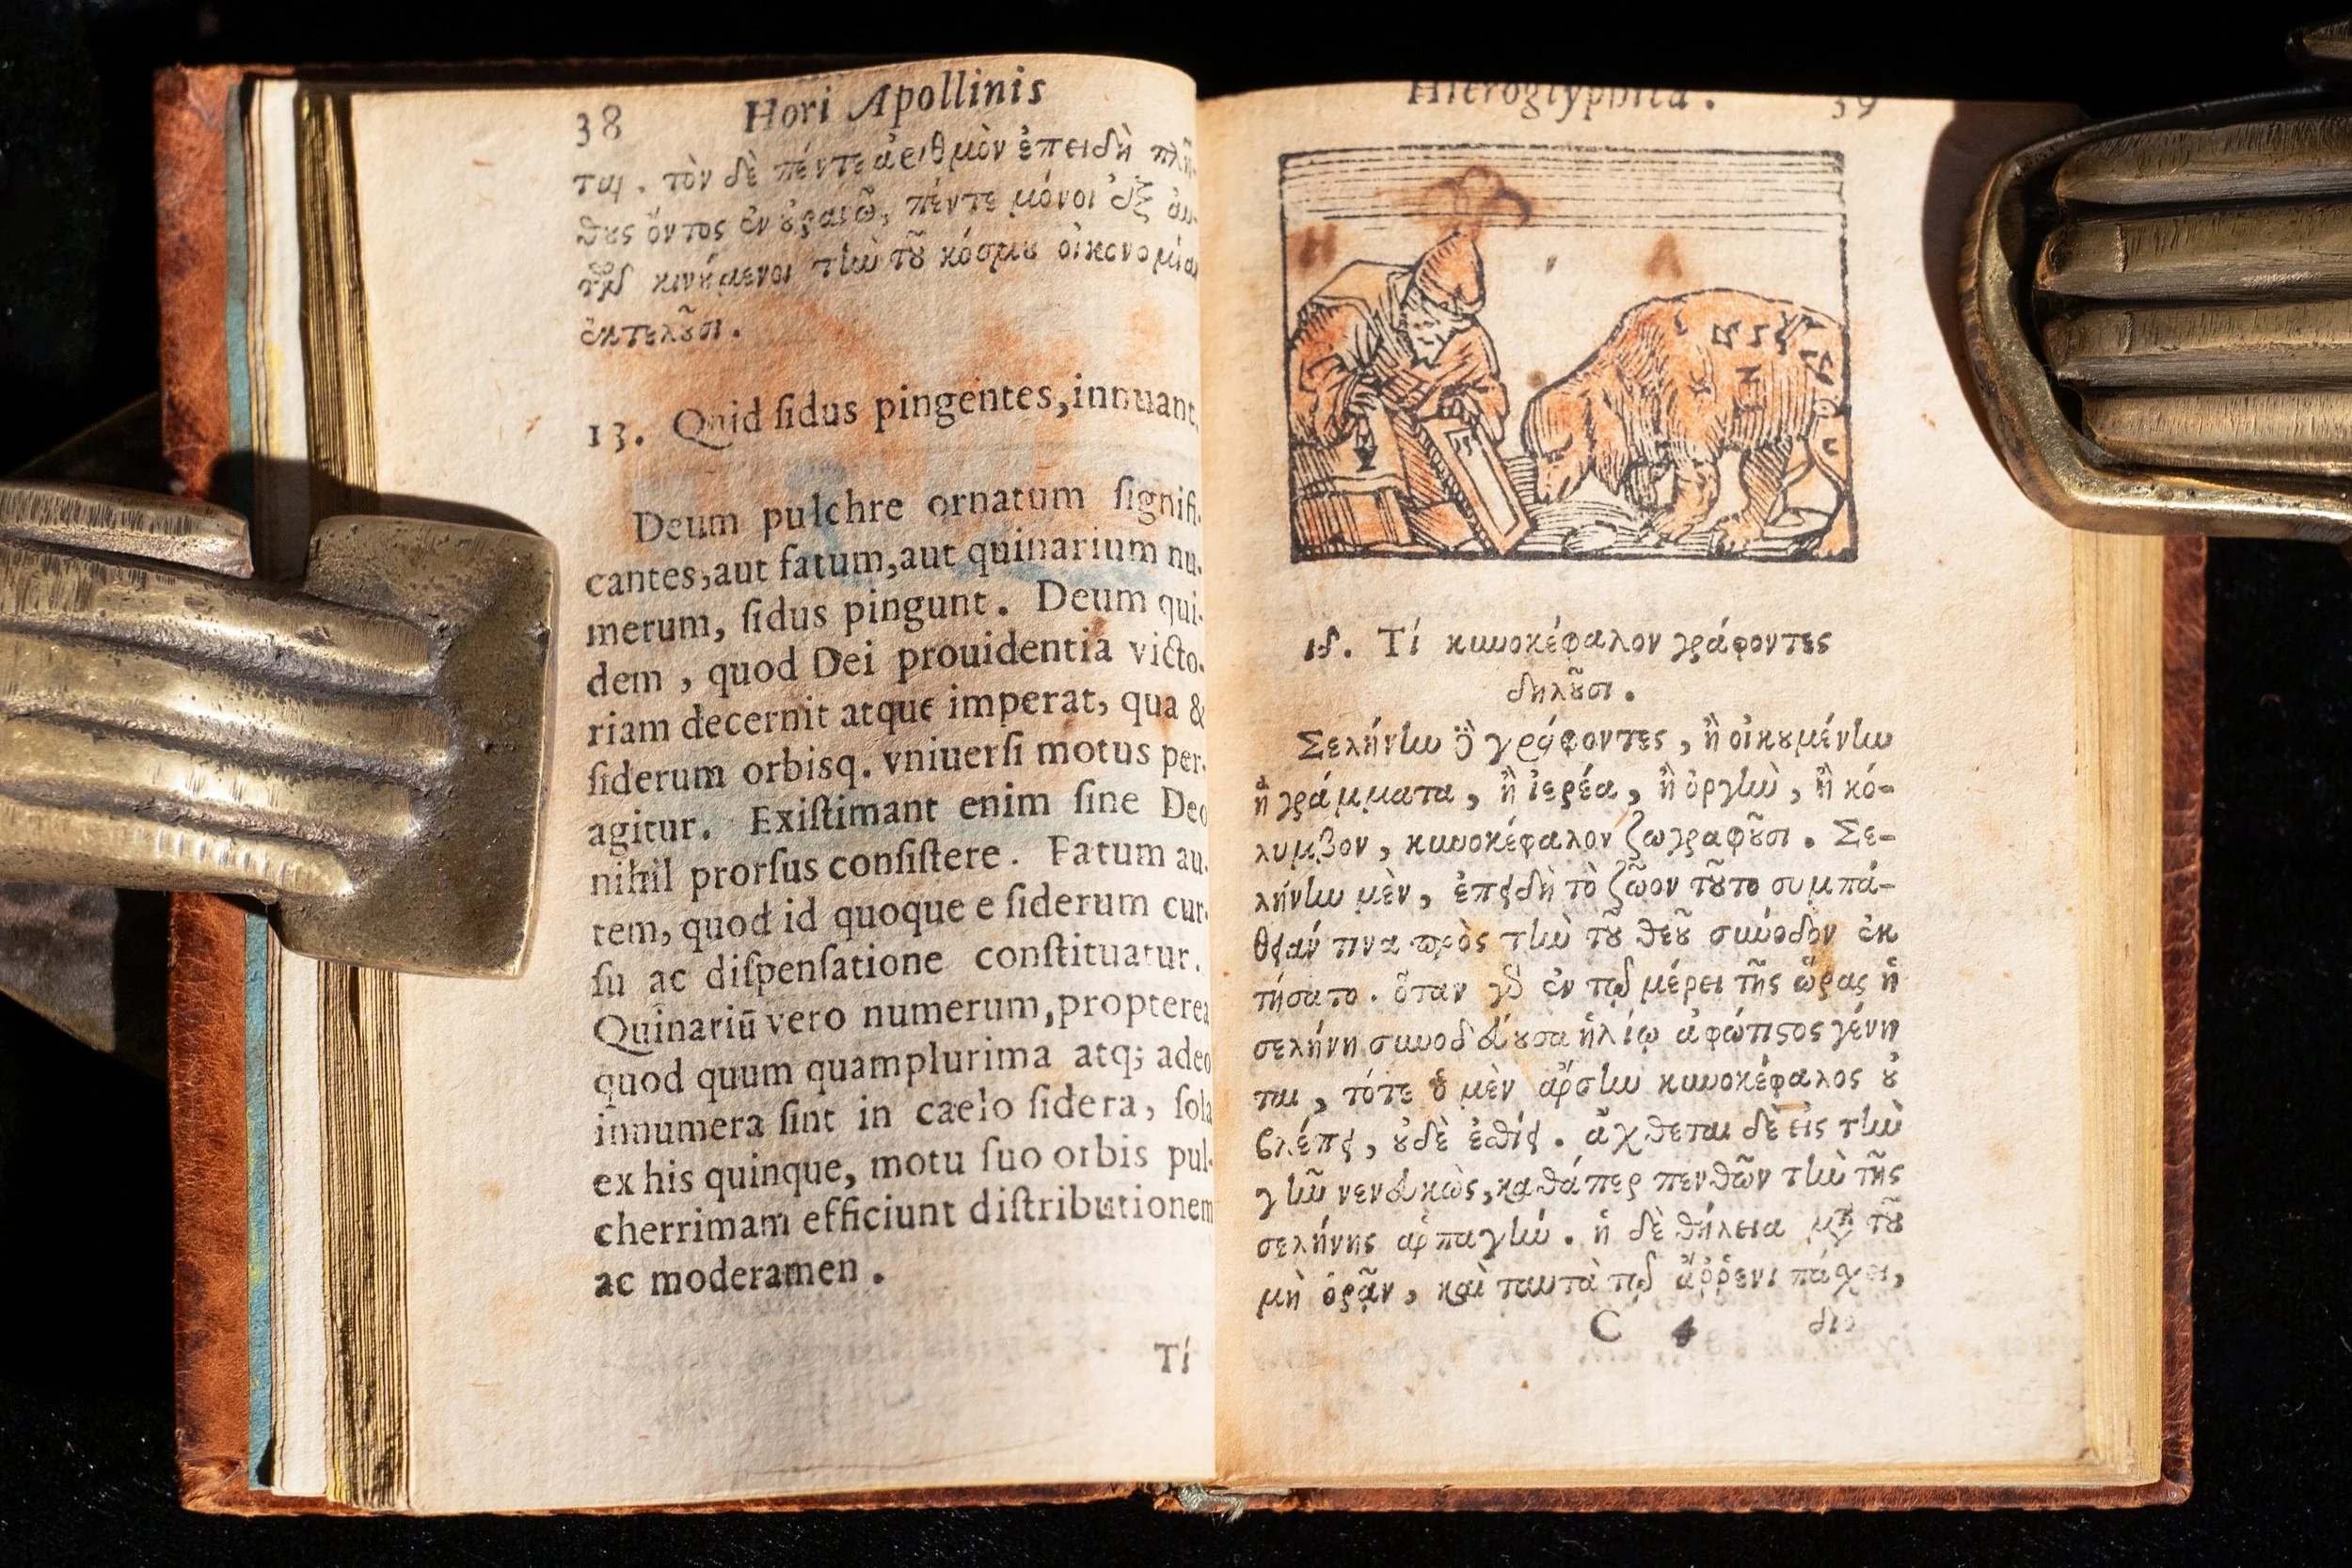 38 Hori Apollinis
ται. τὸν δὲ πέντε ἀριθμὸν ἐπειδὴ πλή-
θους ὄντος ἐν οὐρανῷ, πέντε μόνοι ἐξ αὐ-
τῶν κινούμενοι τὴν τοῦ κόσμου οἰκονομίαν
ἐκτελοῦσι.
13. Quid ſidus pingentes, innuant.
Deum pulchre ornatum ſignifi-
cantes, aut fatum, aut quinarium nu-
merum, ſidus pingunt. Deum qui-
dem, quod Dei prouidentia victo-
riam decernit atque imperat, qua &
ſiderum orbisq. vniuerſi motus per-
agitur. Exiſtimant enim ſine Deo
nihil prorſus conſiſtere. Fatum au-
tem, quod id quoque e ſiderum cur-
ſu ac diſpenſatione conſtituatur.
Quinariū vero numerum, propterea
quod quum quamplurima atq; adeo
innumera ſint in caelo ſidera, ſola
ex his quinque, motu ſuo orbis pul-
cherrimam efficiunt diſtributionem
ac moderamen.
Τί
Hieroglyphica. 39
H A
ιδ. Τί κυνοκέφαλον γράφοντες
δηλοῦσι.
Σελήνην δὲ γράφοντες, ἢ οἰκουμένην
ἢ γράμματα, ἢ ἱερέα, ἢ ὀργὴν, ἢ κό-
λυμβον, κυνοκέφαλον ζωγραφοῦσι. Σε-
λήνην μὲν, ἐπειδὴ τὸ ζῶον τοῦτο συμπά-
θειάν τινα πρὸς τὴν τοῦ θεοῦ σύνοδον ἐκ
τήσατο. ὅταν γὰρ ἐν τῷ μέρει τῆς ὥρας ἡ
σελήνη συνοδεύουσα ἡλίῳ ἀφώτιστος γένη
ται, τότε ὁ μὲν ἄρσην κυνοκέφαλος οὐ
βλέπει, οὐδὲ ἐσθίει. ἄχθεται δὲ εἰς τὴν
γῆν νενευκὼς, καθάπερ πενθῶν τὴν τῆς
σελήνης ἁρπαγήν. ἡ δὲ θήλεια μετὰ τοῦ
μὴ ὁρᾶν, καὶ ταυτὰ τῷ ἄῤῥενι πάσχει,
C 4 διο